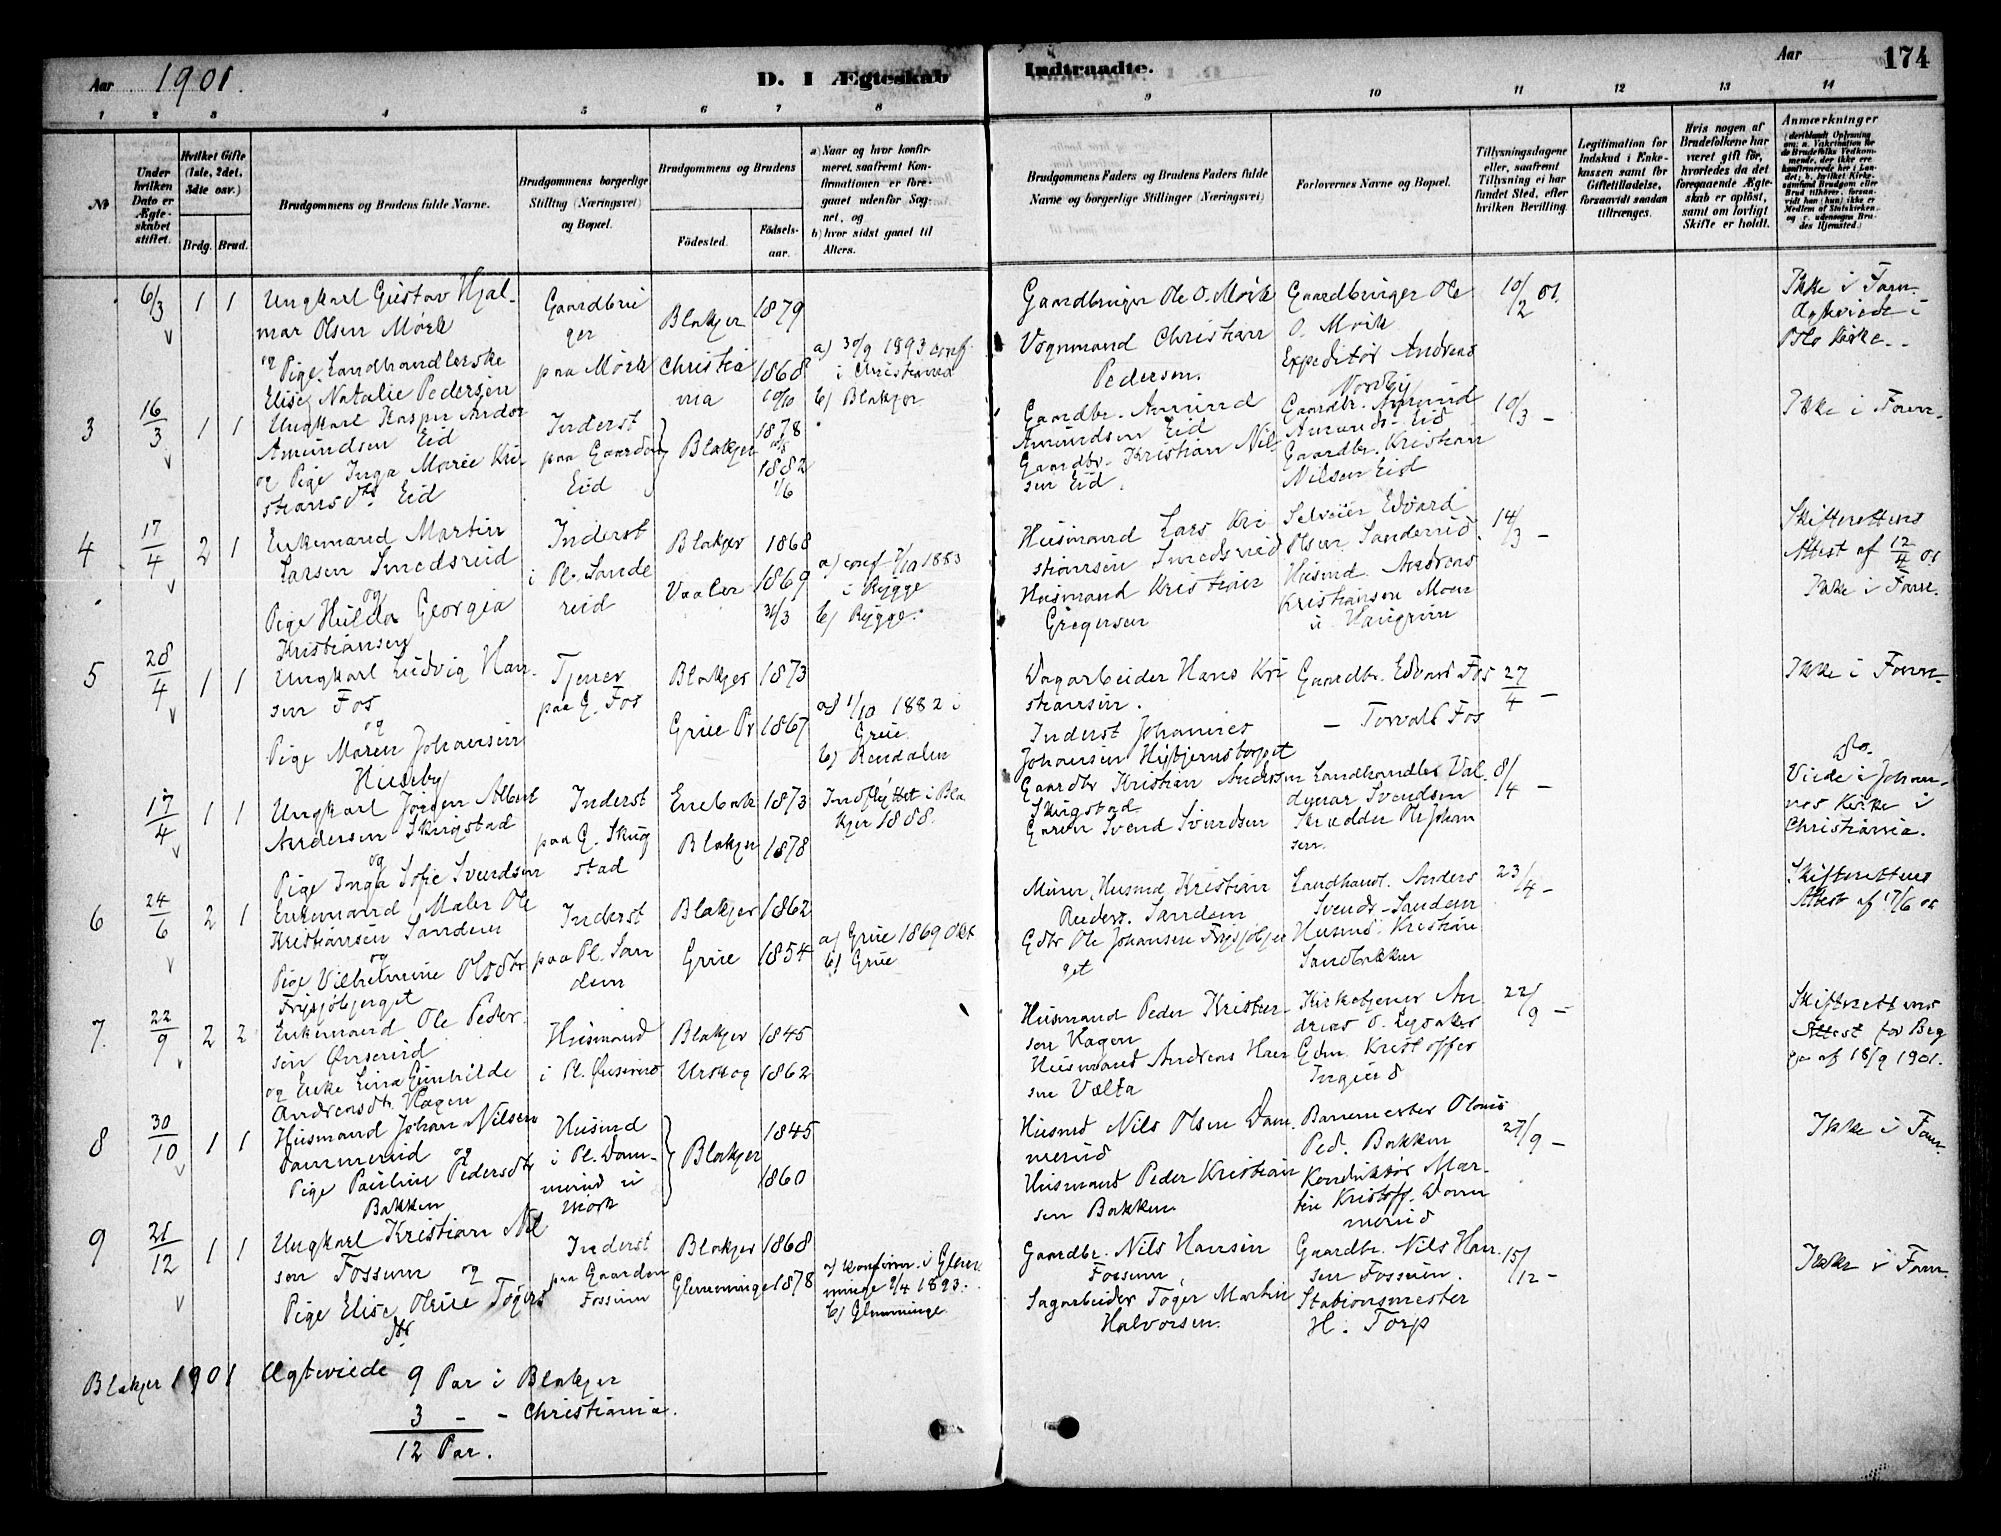 Aar 1901.
D. I Ægteskab
Indtraadte.
Aar
174
1 2 3 4 5 6 7 8 9 10 11 12 13 14
No
Under hvilken Dato er Ægteskabet stiftet.
Hvilket Gifte (1ste, 2det, 3die osv.)
Brdg. Brud.
Brudgommens og Brudens fulde Navne.
Brudgommens borgerlige Stilling (Næringsvei) og Bopæl.
Brudgommens og Brudens
Födested.
Födselsaar.
a) Naar og hvor konfirmeret, saafremt Konfirmationen er foregaaet udenfor Sognet, og
b) hvor sidst gaaet til Alters.
Brudgommens Faders og Brudens Faders fulde Navne og borgerlige Stillinger (Næringsvei)
Forlovernes Navne og Bopæl.
Tillysningsdagene eller, saafremt Tillysning ei har fundet Sted, efter hvilken Bevilling.
Legitimation for Indskud i Enkekassen samt for Giftetilladelse, forsaavidt saadan tiltrænges.
Hvis nogen af Brudefolkene har været gift för, hvorledes da det foregaaende Ægteskab er oplöst, samt om lovligt Skifte er holdt.
Anmærkninger
6/3 1 1
Ungkarl Gustav Hjal-
mar Olsen Mörk
og Pige Landhandlerske
Elise Natalie Pedersen
Gaardbru
ger
paa Mörk
Blakjer 1879
Christia
nia 1868
10/10
a) 30/9 1893 conf.
i Christiania
b) Blakjer
Gaardbruger Ole O. Mörk
Vognmand Christian
Pedersen.
Gaardbruger Ole
O. Mörk
Expeditör Andreas
Nordby
10/2 01.
Ikke i Fam.
Ægteviede i
Oslo Kirke.
3 16/3 1 1
Ungkarl Kasper Andor
Amundsen Eid
og Pige Inga Marie Kri-
stiansdtr Eid
Inderst
paa Gaarden
Eid
Blakjer
1878
1882
1/6
Gaardbr. Amund
Amundsen Eid
Gaardbr. Kristian Nil-
sen Eid.
Gaardbr. Amund
Amunds- Eid
Gaardbr. Kristian
Nilsen Eid
10/3 -
Ikke i Fam.
4 17/4 2 1
Enkemand Martin
Larsen Smedsrud
og
Pige Hulda Georgia
Kristiansen
Inderst
i Pl. Sande
rud
Blakjer 1868
Vaaler 1869
31/3
a) conf 7/10 1883
i Rygge
b) Rygge.
Husmand Lars Kri
stiansen Smedsrud
Husmand Kristian
Gregersen
Selveier Edvard
Olsen Sanderud.
Husmd. Andreas
Kristiansen Moen
u. Haugrim
14/3 -
Skifterettens
Attest af 12/4 01
Ikke i Fam.
5 28/4 1 1
Ungkarl Ludvig Han-
sen Fos
og
Pige Maren Johansen
Huseby
Tjener
paa G. Fos
Blakjer 1873
Grue Pr 1867
a) 1/10 1882 i
Grue.
b) Rendalen
Dagarbeider Hans Kri
stiansen.
Inderst Johannes
Johansen Histjernsberget
Gaardbr. Edvard Fos
- Torvald Fos
27/4 -
Ikke i Fam.
17/4 1 1
Ungkarl Jörgen Albert
Andersen Skugstad
og
Pige Inga Sofie Svendsen
Inderst
paa G. Skug
stad
Enebak 1873
Blakjer 1878
Indflyttet i Bla
kjer 1888.
Gaardbr Kristian Andersen
Skugstad
Garver Svend Svendsen
Landhandler Val-
demar Svendsen
Skrædder Ole Johan
sen.
8/4 -
do.
Viede i Johan-
nes Kirke i
Christiania.
6 24/6 2 1
Enkemand Maler Ole
Kristiansen Sandem
og
Pige Vilhelmine Olsdtr
Frysjöbjerget
Inderst
paa Pl. San
dem
Blakjer 1862
Grue 1854
a) Grue 1869 Okt
b) Grue
Murer, Husmd Kristian
Peders. Sandem
Gdbr Ole Johansen Frysjöbjer
get
Landhandl. Anders
Svends- Sandem
Husmd. Kristian
Sandbakken
23/4 -
Skifterettens
Attest af 17/6 01
7. 22/9 2 2
Enkemand Ole Peder-
sen Önserud
og Enke Lina Gunhilde
Andreasdtr. Hagen
Husmand
i Pl. Önserud
Blakjer 1845
Urskog 1862
Husmand Peder Kristian
sen Hagen
Husmand Andreas Han
sen Vælta
Kirketjener An
dreas O. Lysaker
Gdm. Kristoffer
Ingerud
22/9 -
Skifterettens
Attest for Beg
ge af 18/9 1901.
8 30/10 1 1
Husmand Johan Nilsen
Dammerud og
Pige Pauline Pedersdtr
Bakken
Husmd
i Pl. Dam-
merud u
Mörk
Blakjer
1845
1860
Husmd Nils Olsen Dam
merud
Husmand Peder Kristian
sen Bakken
Banemester Olaus
Ped. Bakken
Konduktör Mar-
tin Kristoff. Dam
merud
27/9 -
Ikke i Fam.
9 21/12 1 1
Ungkarl Kristian Nil
sen Fossum og
Pige Elise Oline Tögers
dtr
Inderst
paa Gaarden
Fossum
Blakjer 1868
Glemminge 1878
a) Konfirm. i Glem
minge 9/4 1893.
b) Glemminge
Gaardbr. Nils Hansen
Fossum,
Sagarbeider Töger Martin
Halvorsen.
Gaardbr. Nils Han-
sen Fossum.
Stationsmester
H. Torp
15/12 -
Ikke i Fam.
Blakjer 1901 Ægteviede 9 Par i Blakjer
3 - - Christiania.
12 Par.